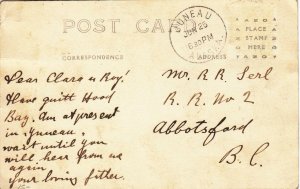 POST CARD
JUNEAU
JUN 25
630 PM
CORRESPONDENCE
ADDRESS
PLACE
STAMP
HERE
Dear Clara & Roy!
Have quitt Hood
Bay. Am at present
in Juneau,
want until you
will hear from me
again
your loving father.
Mr. R. R. Serl
R. R. No. 2
Abbotsford
B. C.